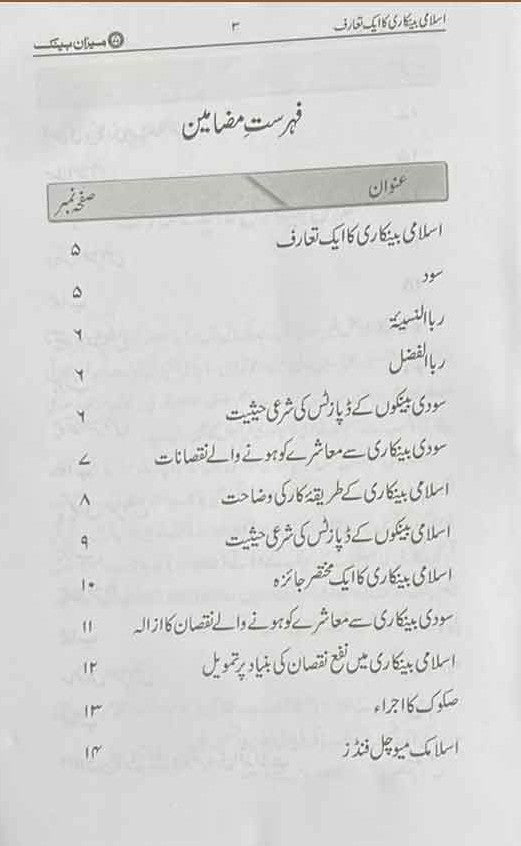 اسلامی بینکاری کا ایک تعارف ۳ میزان بینک
فہرستِ مضامین
عنوان صفحہ نمبر
اسلامی بینکاری کا ایک تعارف ۵
سود ۵
ربا النسیئۃ ۶
ربا الفضل ۶
سودی بینکوں کے ڈپازٹس کی شرعی حیثیت ۶
سودی بینکاری سے معاشرے کو ہونے والے نقصانات ۷
اسلامی بینکاری کے طریقۂ کار کی وضاحت ۸
اسلامی بینکوں کے ڈپازٹس کی شرعی حیثیت ۹
اسلامی بینکاری کا ایک مختصر جائزہ ۱۰
سودی بینکاری سے معاشرے کو ہونے والے نقصان کا ازالہ ۱۱
اسلامی بینکاری میں نفع نقصان کی بنیاد پر تمویل ۱۲
صکوک کا اجراء ۱۳
اسلامک میوچل فنڈز ۱۴